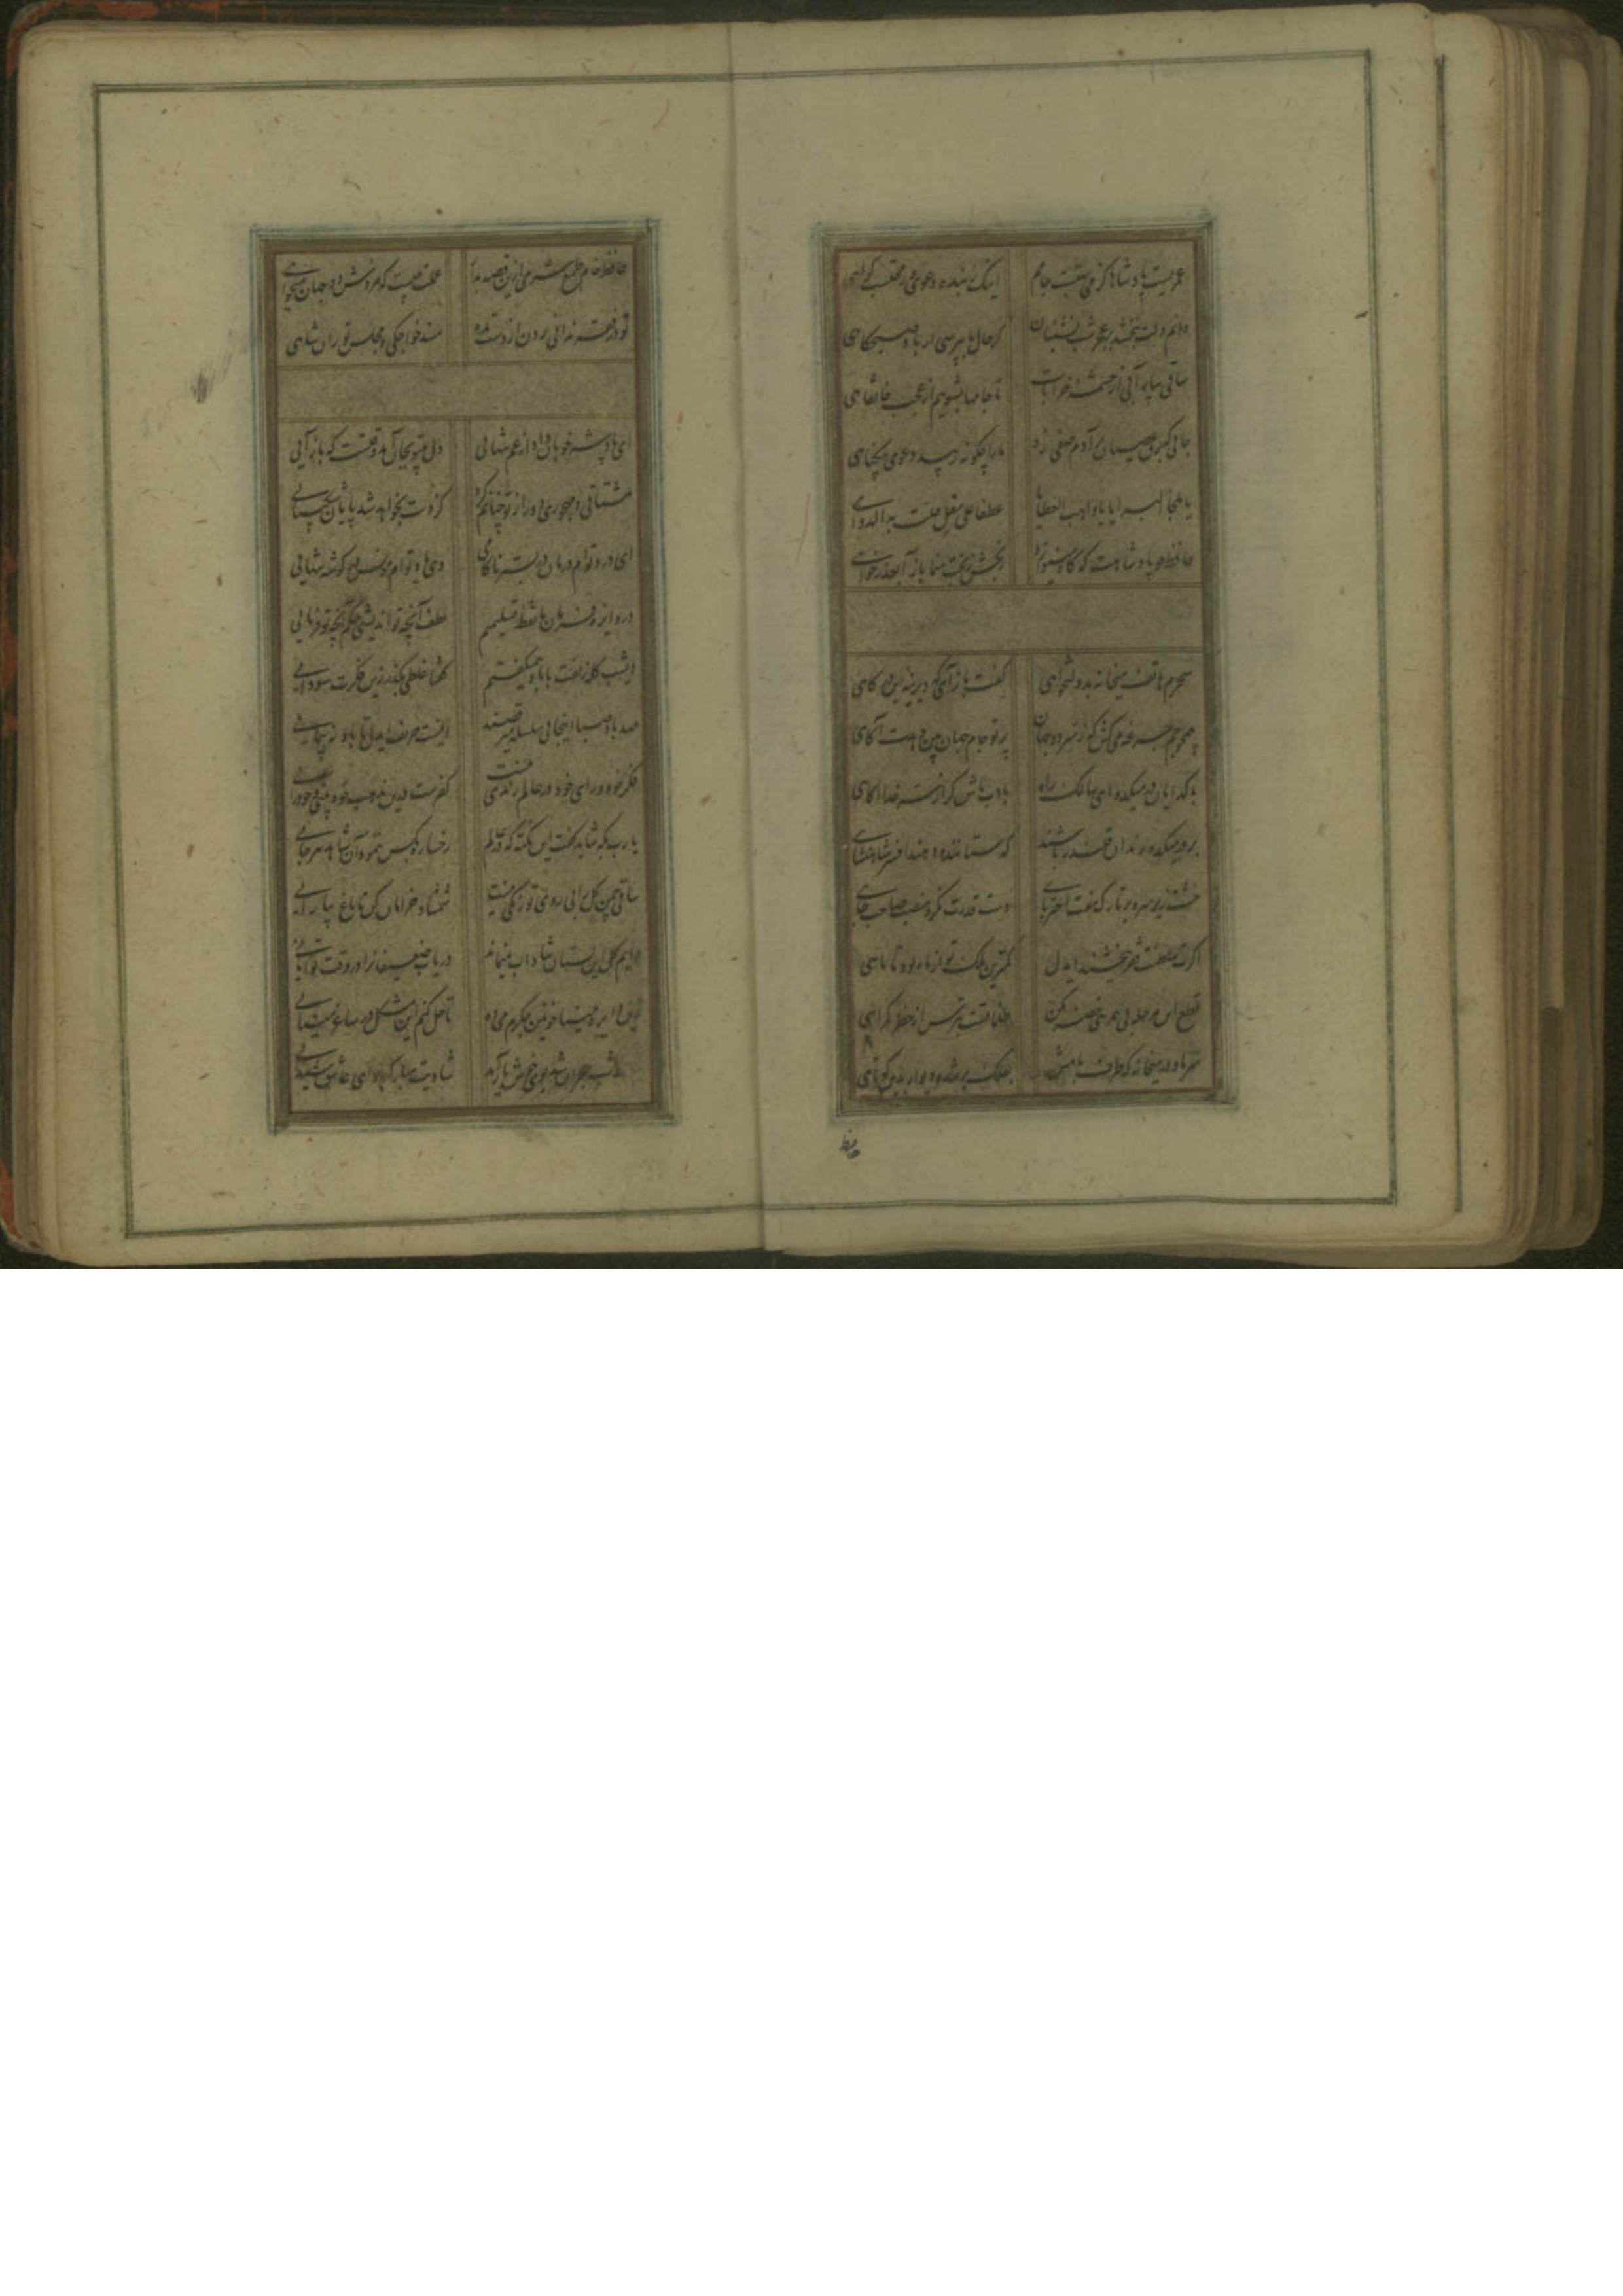 عمریست پادشاها کز می تهیست جامم اینک ز بنده دعوی وز محتسب گواهی
دانم دلت ببخشد بر عجز شب نشینان گر حال ما بپرسی از باد صبحگاهی
ساقی بیار آبی از چشمه خرابات تا جامها بشوییم از عجب خانقاهی
جائی که برق عصیان بر آدم صفی زد ما را چگونه زیبد دعوی بیگناهی
یا ملجا البرایا یا واهب العطایا عطفا علی مقل حلت به الدواهی
حافظ چو پادشاهت که گاه رنجش ز بخت منما باز آ بعذر خواهی
سحرم هاتف میخانه بدولتخواهی گفت باز آی که دیرینه این درگاهی
همچو جم جرعه می کش که ز سر دو جهان پرتو جام جهان بین دهدت آگاهی
با گدایان در میکده ای سالک راه بادب باش گر از سر خدا آگاهی
بر در میکده رندان قلندر باشند که ستانند و دهند افسر شاهنشاهی
خشت زیر سر و بر تارک هفت اختر پای دست قدرت نگر و منصب صاحب جاهی
اگرت سلطنت فقر ببخشند ایدل کمترین ملک تو از ماه بود تا ماهی
قطع این مرحله بی همرهی خضر مکن ظلماتست بترس از خطر گمراهی
سر ما و در میخانه که طرف بامش بفلک بر شده و دیوار بدین کوتاهی
حافظ
حافظ خام طمع شرمی ازین قصه بدار عملت چیست که مزدش دو جهان میخواهی
تو در فقر ندانی زدن از دست مده مسند خواجگی و مجلس توران شاهی
ای پادشه خوبان داد از غم تنهائی دل بی تو بجان آمد وقتست که باز آئی
مشتاقی و مهجوری دور از تو چنانم کرد کز دست بخواهد شد پایان شکیبائی
ای درد توام درمان در بستر ناکامی وی یاد توام مونس در گوشه تنهائی
در دایره فرمان ما نقطه تسلیمیم لطف آنچه تو اندیشی حکم آنچه تو فرمائی
دیشب گله زلفت با باد همیگفتم گفتا غلطی بگذر زین فکرت سودائی
صد باد صبا اینجا با سلسله میرقصند اینست حریف ایدل تا باد نپیمائی
فکر خود و رای خود در عالم رندی نیست کفرست درین مذهب خود بینی و خودرائی
یارب بکه شاید گفت این نکته که در عالم رخساره بکس ننمود آن شاهد هرجائی
ساقی چمن گل را بی روی تو رنگی نیست شمشاد خرامان کن تا باغ بیارائی
دایم گل این بستان شاداب نمیماند دریاب ضعیفانرا در وقت توانائی
زین دایره مینا خونین جگرم می ده تا حل کنم این مشکل در ساغر مینائی
حافظ شب هجران شد بوی خوش یار آمد شادیت مبارک باد ای عاشق شیدائی